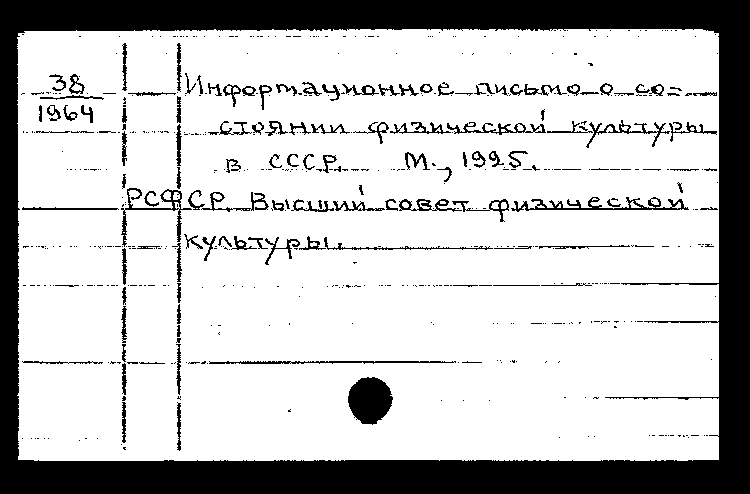 38
1964
Информационное письмо о со=
стоянии физической культуры
в СССР. М., 1925.
РСФСР. Высший совет физической
культуры.